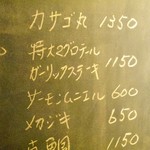 カサゴ丸 1350
特大マグロテール
ガーリックステーキ 1150
サーモンムニエル 600
メカジキ 650
真鯛 1150